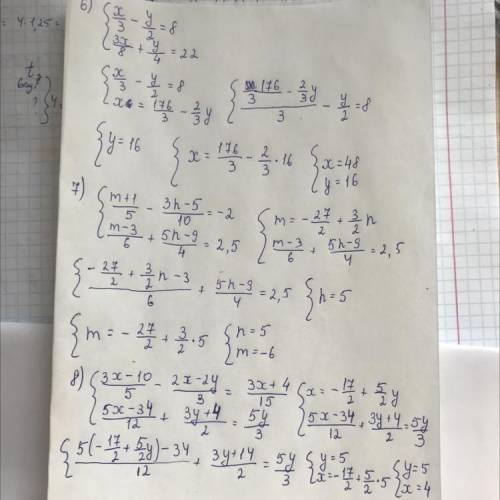 = 4·1,25 =
6) { x/3 - y/2 = 8
3x/8 + y/4 = 22
{ x/3 - y/2 = 8
x = 176/3 - 2/3 y
{ (176/3 - 2/3 y)/3 - y/2 = 8
{ y = 16
{ x = 176/3 - 2/3 · 16
{ x = 48
y = 16
7) { (m+1)/5 - (3n-5)/10 = -2
(m-3)/6 + (5n-9)/4 = 2,5
{ m = -27/2 + 3/2 n
(m-3)/6 + (5n-9)/4 = 2,5
{ (-27/2 + 3/2 n - 3)/6 + (5n-9)/4 = 2,5
{ n = 5
{ m = -27/2 + 3/2 · 5
{ n = 5
m = -6
8) { (3x-10)/5 - (2x-2y)/3 = (3x+4)/15
(5x-34)/12 + (3y+4)/2 = 5y/3
{ x = -17/2 + 5/2 y
(5x-34)/12 + (3y+4)/2 = 5y/3
{ (5(-17/2 + 5/2 y) - 34)/12 + (3y+14)/2 = 5y/3
{ y = 5
x = -17/2 + 5/2 · 5
{ y = 5
x = 4